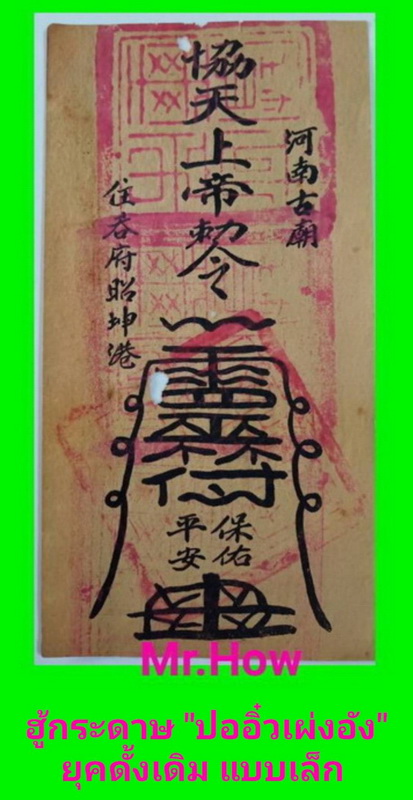 協天上帝勅令
河南古廟
住吞府昭坤港
保佑
平安
Mr.How
ฮู้กระดาษ "ปออิ๋วเผ่งอัง"
ยุคดั้งเดิม แบบเล็ก